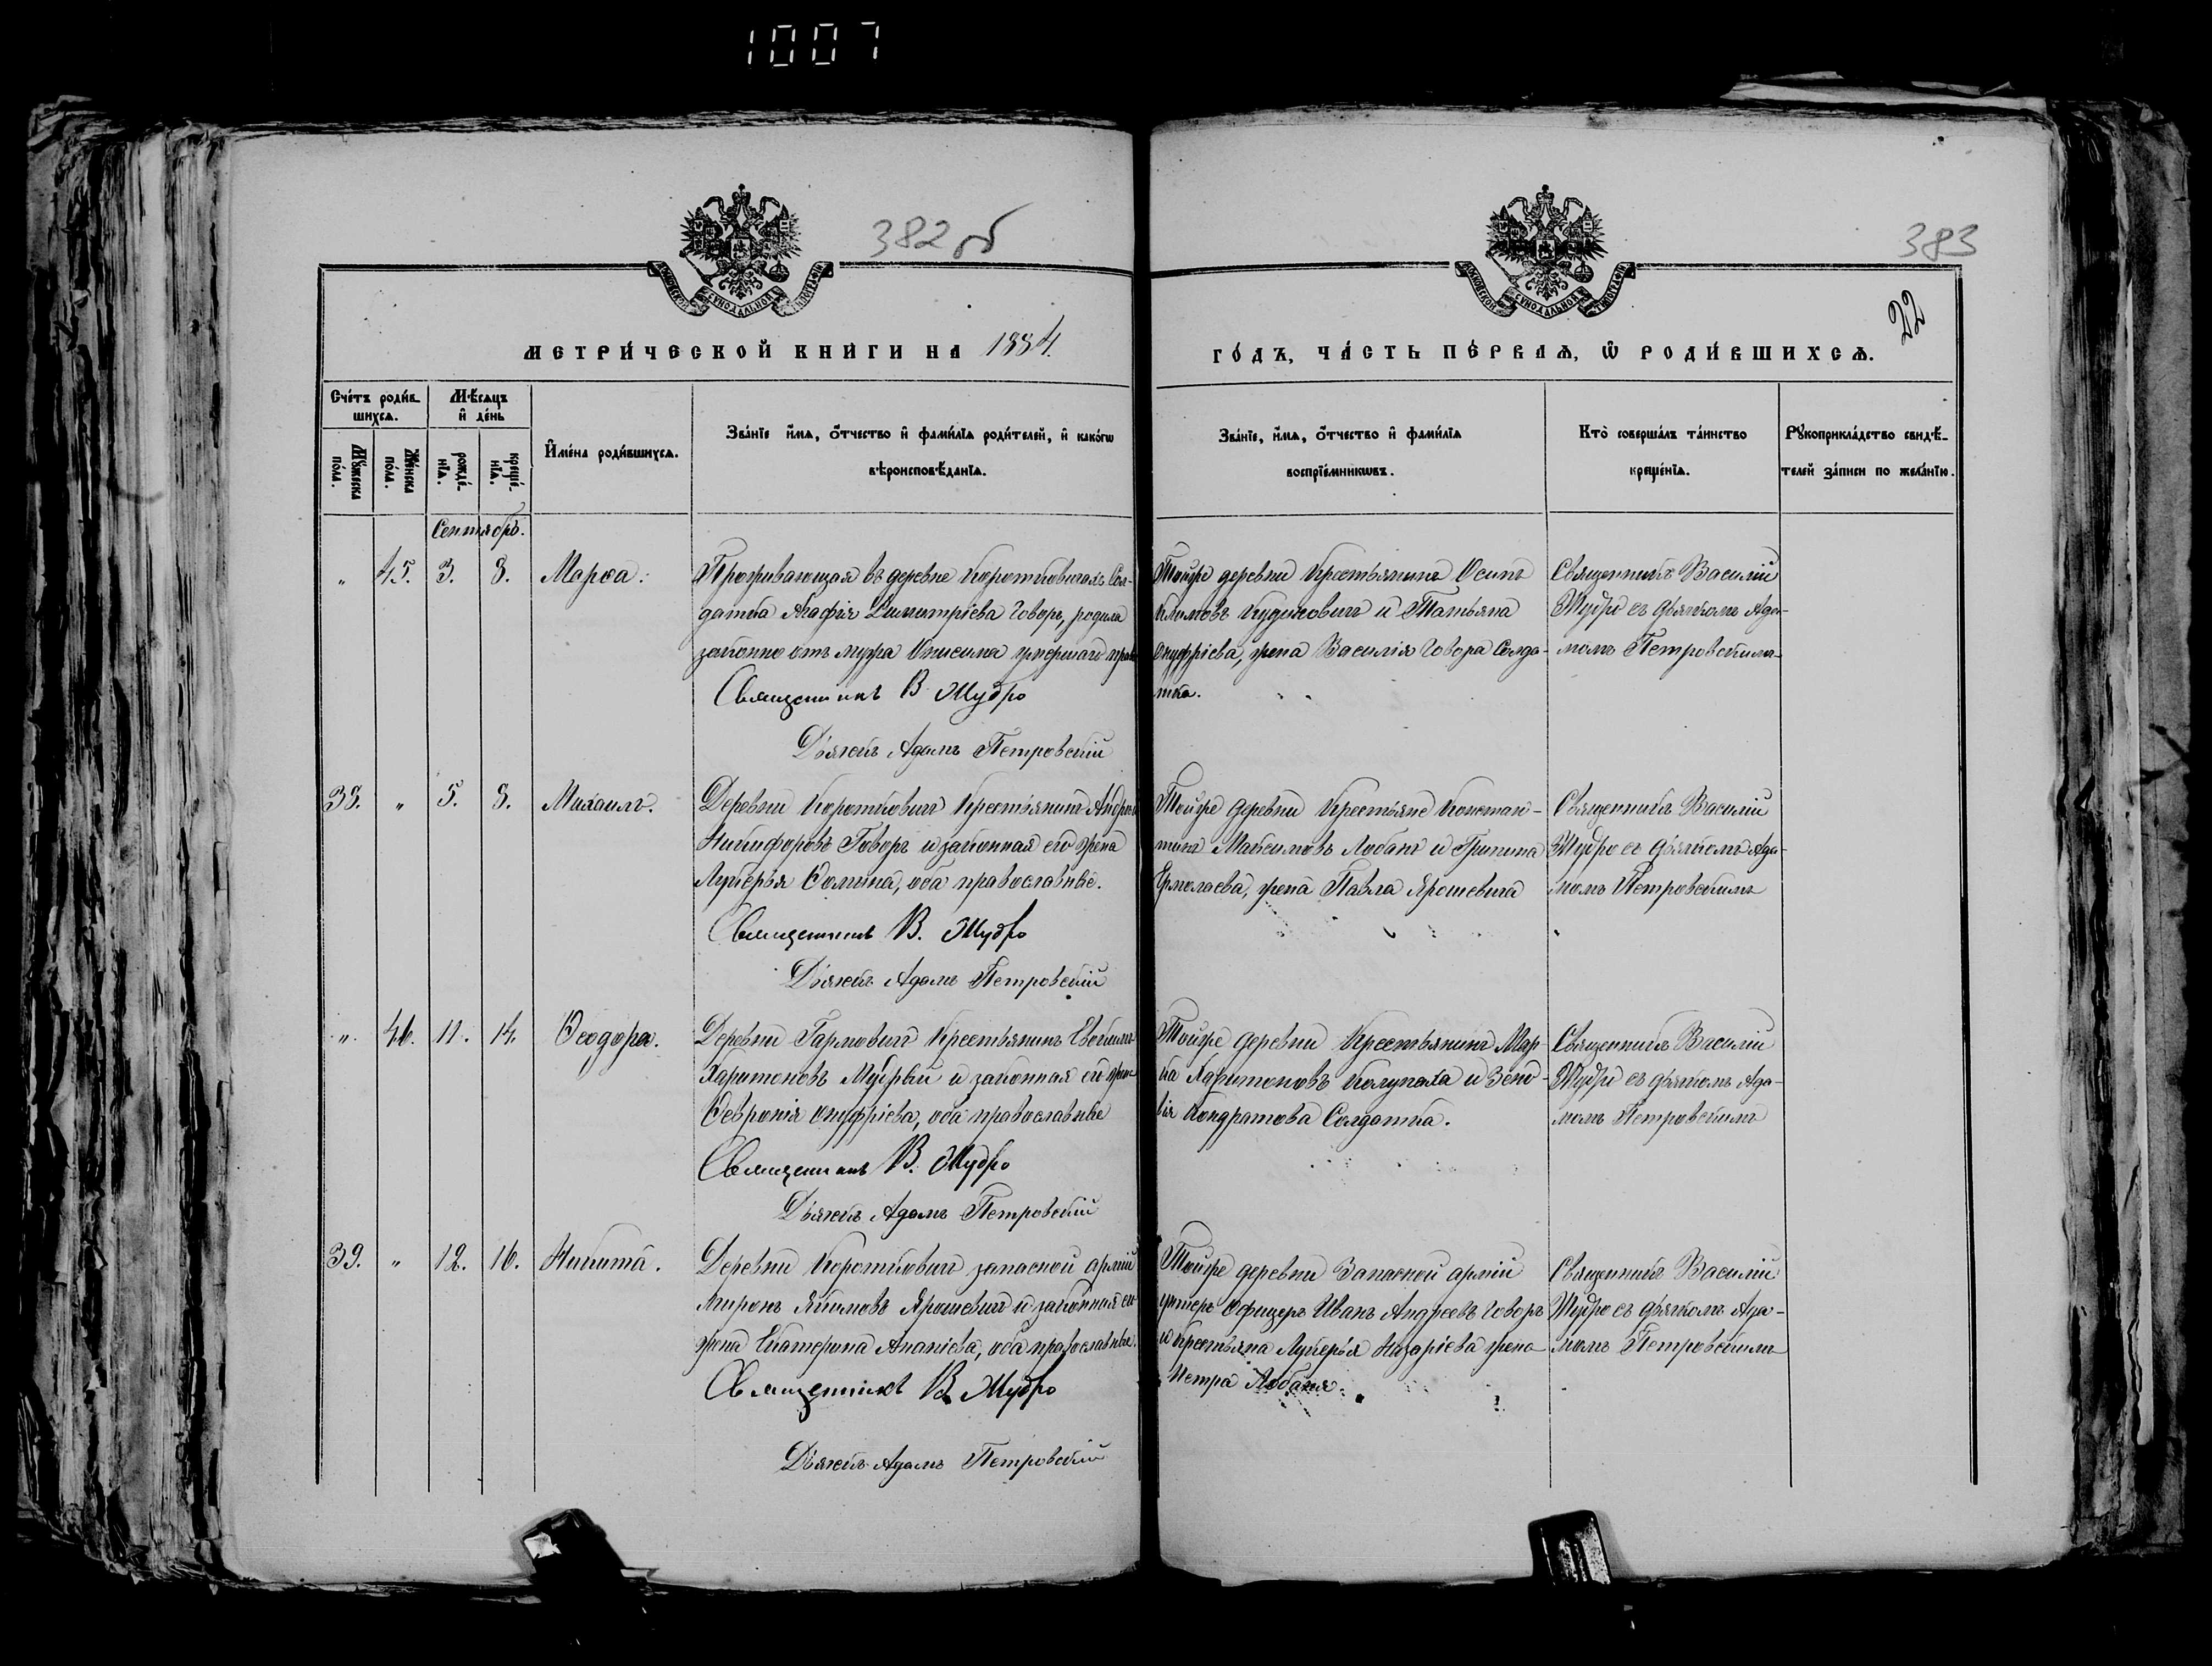 1007
382 об
383
22
МЕТРИ́ЧЕСКОЙ КНИ́ГИ НА 1884.
ГО́ДЪ, ЧА́СТЬ ПЕ́РВАЯ, Ѿ РОДИ́ВШИХСЯ.
Сче́тъ роди́в-
шихся.
Мѣ́сяцъ
и҆ де́нь
Мꙋ́жеска
по́ла.
Же́нска
по́ла.
рожде́-
нїѧ.
креще́-
нїѧ.
И҆мена̀ роди́вшихся.
Зва́нїе и҆́мя, о҆́тчество и҆ фами́лїя роди́телей, и҆ како́гѡ
вѣроисповѣ́данїѧ.
Зва́нїе, и҆́мя, о҆́тчество и҆ фами́лїя
воспрїе́мникѡвъ.
Кто̀ соверша́лъ та́инство
креще́нїѧ.
Рꙋкоприкла́дство свидѣ́-
телей за́писи по жела́нїю.
Сентябрь.
" 45. 3. 8. Марѳа.
Проживающая въ деревне Коротковичахъ Сол-
датка Агафія Димитріева Говоръ, родила
законно отъ мужа Онисима умершаго
Священникъ В. Мудро
Дьячекъ Адамъ Петровскій
Тойже деревни Крестьянинъ Осипъ
Кудиновичъ и Татьяна
Онуфріева, жена Василія Говора Солда-
тка.
Священникъ Василій
Мудро съ дьячкомъ Ада-
момъ Петровскимъ
38. " 5. 8. Михаилъ.
Деревни Коротковичъ Крестьянинъ Андрей
Никифоровъ Говоръ и законная его жена
Лукерья Ѳомина, оба православные.
Священникъ В. Мудро
Дьячекъ Адамъ Петровскій
Тойже деревни Крестьяне Констан-
тинъ Максимовъ Лобанъ и Грипина
Ермолаева, жена Павла Ярошевича
Священникъ Василій
Мудро съ дьячкомъ Ада-
момъ Петровскимъ
" 46. 11. 14. Ѳеодора.
Деревни Гармовичъ Крестьянинъ
Харитоновъ и законная его жена
Ѳевронія Онуфріева, оба православные
Священникъ В. Мудро
Дьячекъ Адамъ Петровскій
Тойже деревни Крестьянинъ Мар-
ка Харитоновъ и Зено-
вія Кондратова Солдатка.
Священникъ Василій
Мудро съ дьячкомъ Ада-
момъ Петровскимъ
39. " 12. 16. Никита.
Деревни Коротковичъ запасной арміи
Миронъ Якимовъ Ярошевичъ и законная его
жена Екатерина Ананіева, оба православные.
Священникъ В. Мудро
Дьячекъ Адамъ Петровскій
Тойже деревни Запасной арміи
унтеръ Офицеръ Иванъ Андреевъ Говоръ
и Крестьяна Лукерья Назаріева жена
Петра Лобаня.
Священникъ Василій
Мудро съ дьячкомъ Ада-
момъ Петровскимъ